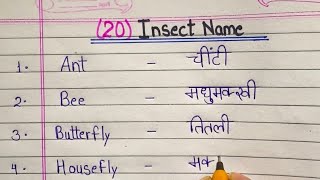 (20) Insect Name
1. Ant - चींटी
2. Bee - मधुमक्खी
3. Butterfly - तितली
4. Housefly - मक